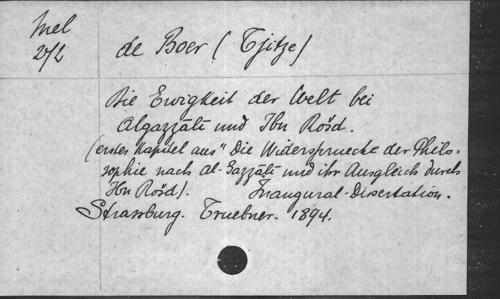 Mel
2/2
de Boer (Tjitze)
Die Ewigkeit der Welt bei
Algazzālī und Ibn Rošd.
(erstes Kapitel aus "Die Widersprueche der Philo-
sophie nach al-Ġazzālī und ihr Ausgleich durch
Ibn Rošd). Inaugural-Dissertation.
Strassburg. Truebner. 1894.